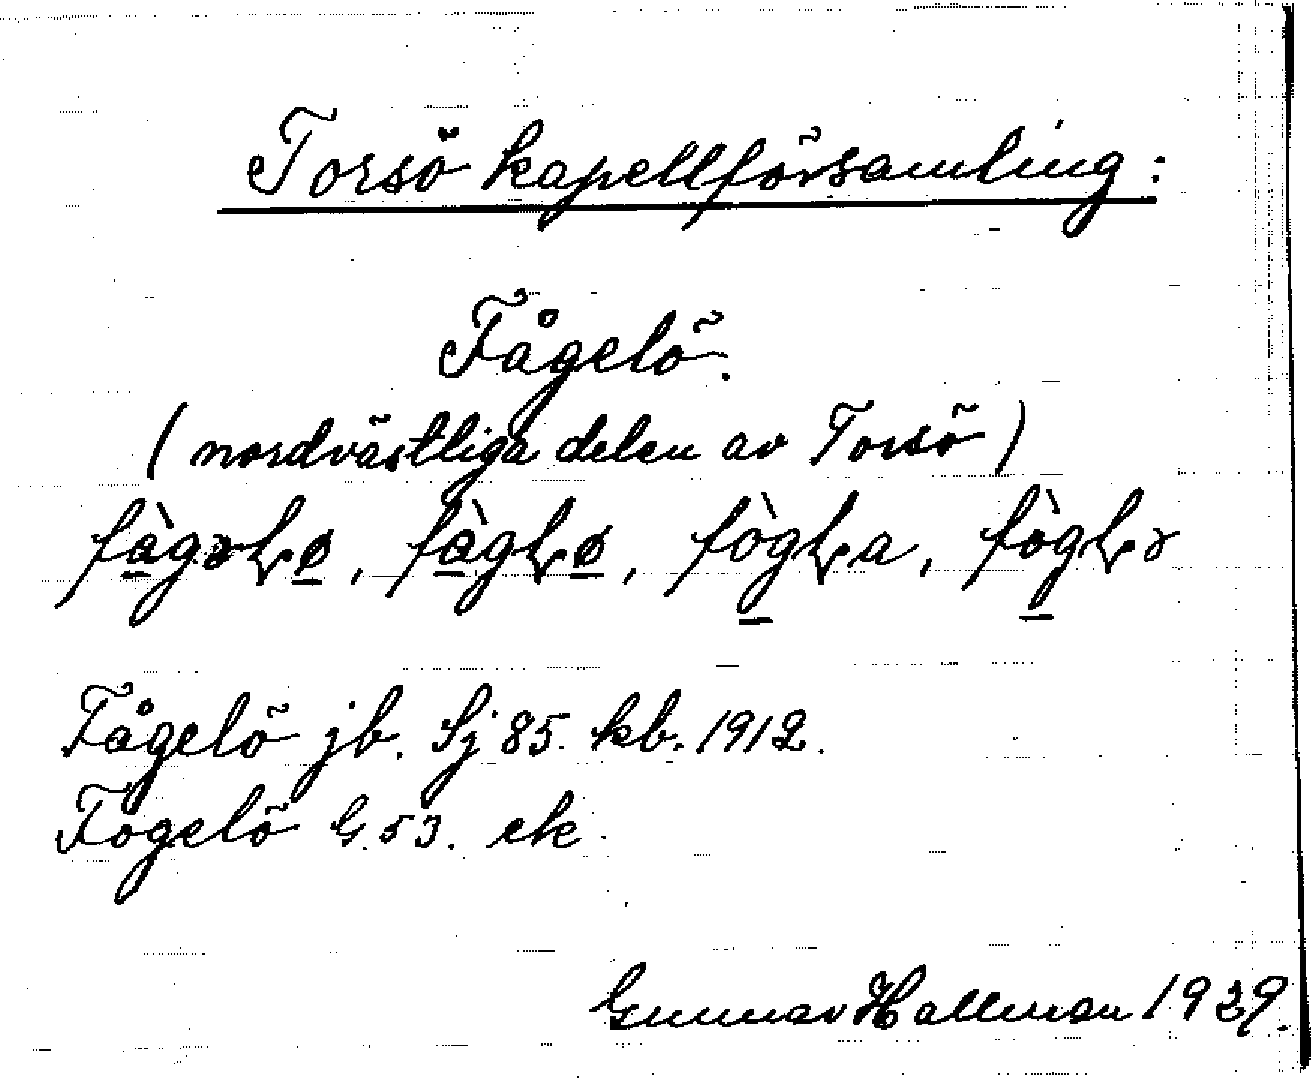 Torsö kapellförsamling:
Fågelö.
(nordvästliga delen av Torsö)
fàgəɫø, fàgɫø, fògɫa, fògɫə
Fågelö jb. Sj 85. kb. 1912.
Fogelö G. 53. ek.
Gunnar Hallman 1929.